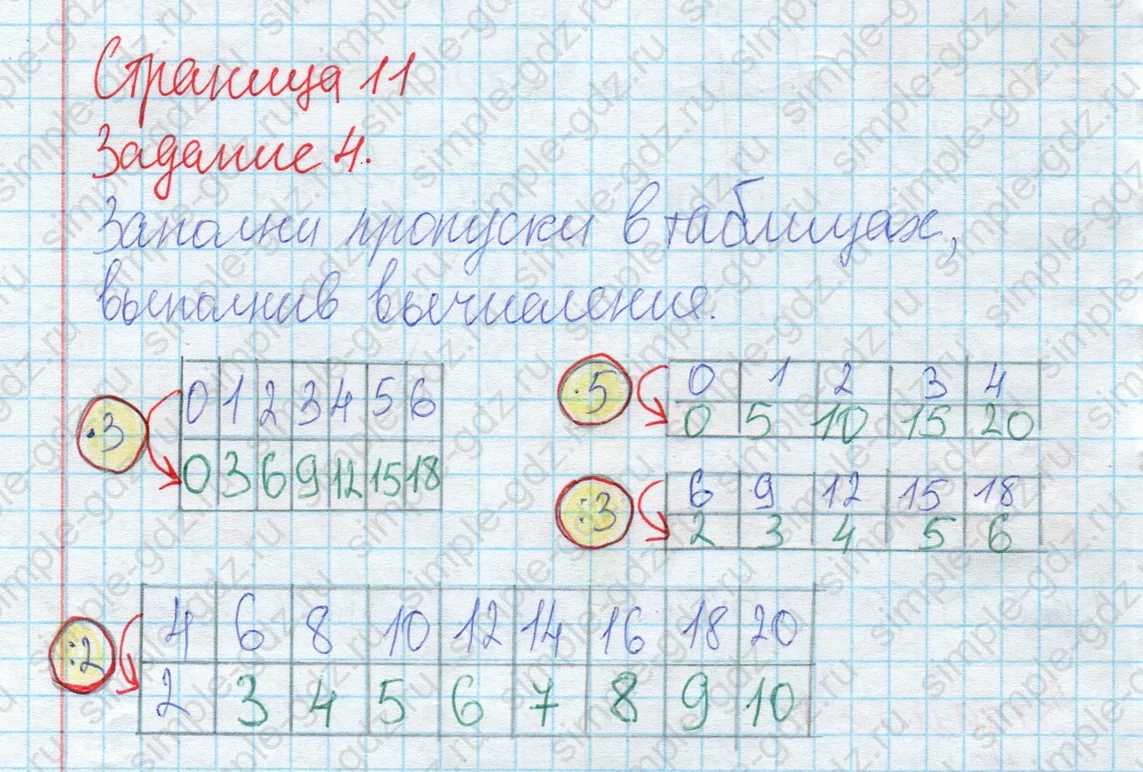 Страница 11
Задание 4.
Заполни пропуски в таблицах,
выполнив вычисления.
·3
0 1 2 3 4 5 6
0 3 6 9 12 15 18
·5
0 1 2 3 4
0 5 10 15 20
:3
6 9 12 15 18
2 3 4 5 6
:2
4 6 8 10 12 14 16 18 20
2 3 4 5 6 7 8 9 10
simple-gdz.ru